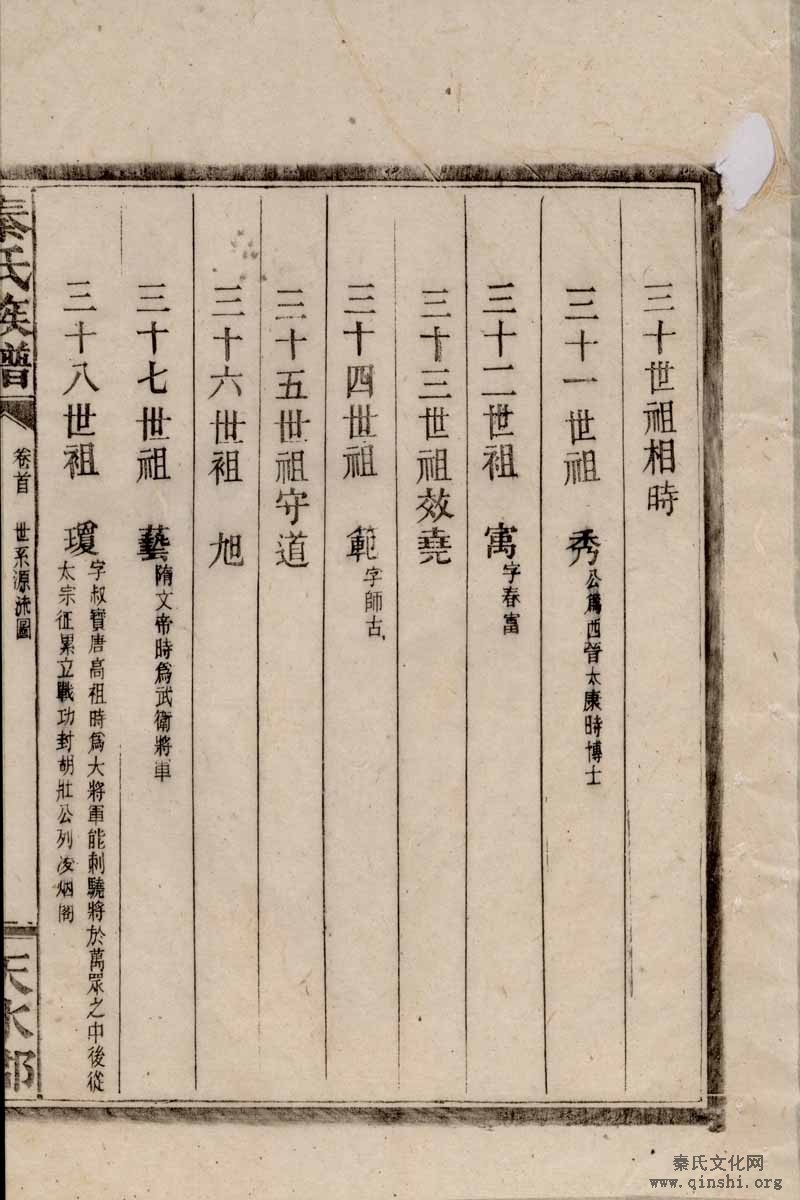 三十世祖相時
三十一世祖 秀 公爲西晉太康時博士
三十二世祖 寓 字春富
三十三世祖效堯
三十四世祖 範 字師古
三十五世祖守道
三十六世祖 旭
三十七世祖 藝 隋文帝時爲武衛將車
三十八世祖 瓊 字叔寶唐高祖時爲大將軍能刺驍將於萬眾之中後從
太宗征累立戰功封胡壯公列凌烟阁
秦氏族譜
卷首 世系源流圖
天水郡
秦氏文化网
www.qinshi.org